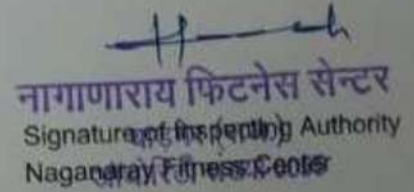 नागाणाराय फिटनेस सेन्टर
Signature of Inspecting Authority
Naganaray Fitness Center